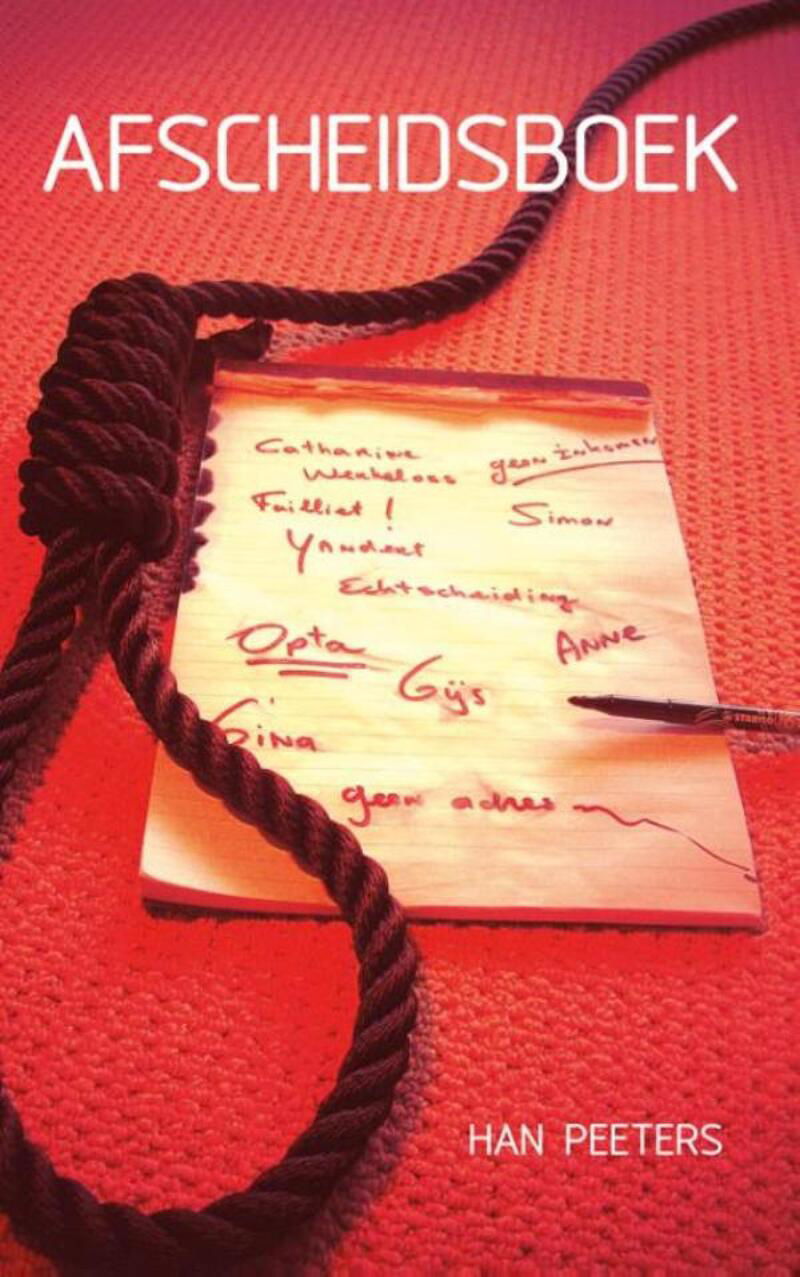 AFSCHEIDSBOEK
Catharine
Werkeloos
geen inkomen
Failliet !
Simon
Echtscheiding
Opta
Anne
Gijs
Gina
geen adres
HAN PEETERS